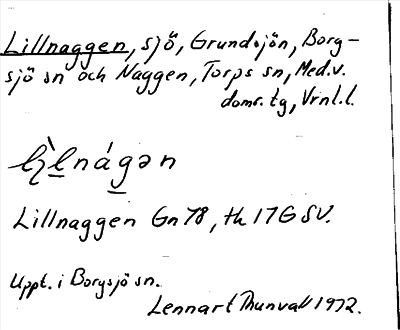 Lillnaggen, sjö, Grundsjön, Borg-
sjö sn och Naggen, Torps sn, Med.v.
domr. tg, Vrnl.l.
nágən
Lillnaggen Gn 78, tk 17G SV.
Uppt. i Borgsjö sn.
Lennart Thunvall 1972.